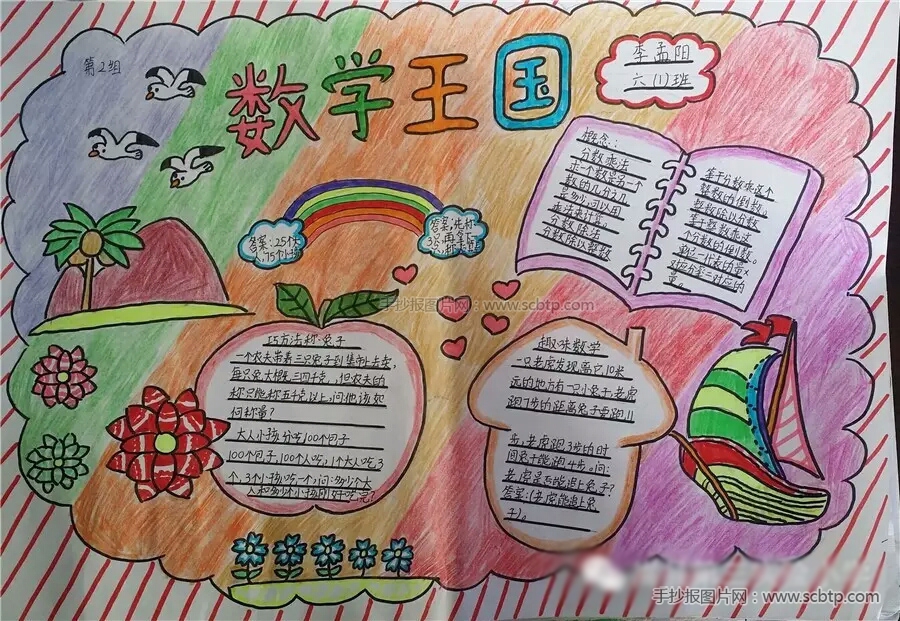 第2组
数学王国
李孟阳
六（1）班
概念：
分数乘法
求一个数是另一个
数的几分之几
是多少，可以用
乘法来计算。
分数除法
分数除以整数
等于分数乘这个
整数的倒数。
整数除以分数
等于整数乘这
个分数的倒数。
单位一代表的量×
对应分率=对应的
量。
答案：25个大
人，75个小孩
答案：先称
手抄报图片网：www.scbtp.com
巧方法称兔子
一个农夫带着三只兔子到集市上去卖，
每只兔大概三四千克，但农夫的
称只能称五千克以上，问他该如
何称量？
大人小孩分吃100个包子
100个包子，100个人吃，1个大人吃3
个，3个小孩吃一个，问：多少个大
人和多少个小孩刚好吃完？
趣味数学
一只老虎发现离它10米
远的地方有一只小兔子，老虎
跑7步的距离兔子要跑11
步，老虎跑3步的时
间兔子能跑4步。问：
老虎是否能追上兔子？
答案：（老虎能追上兔
子）。
手抄报图片网：www.scbtp.com